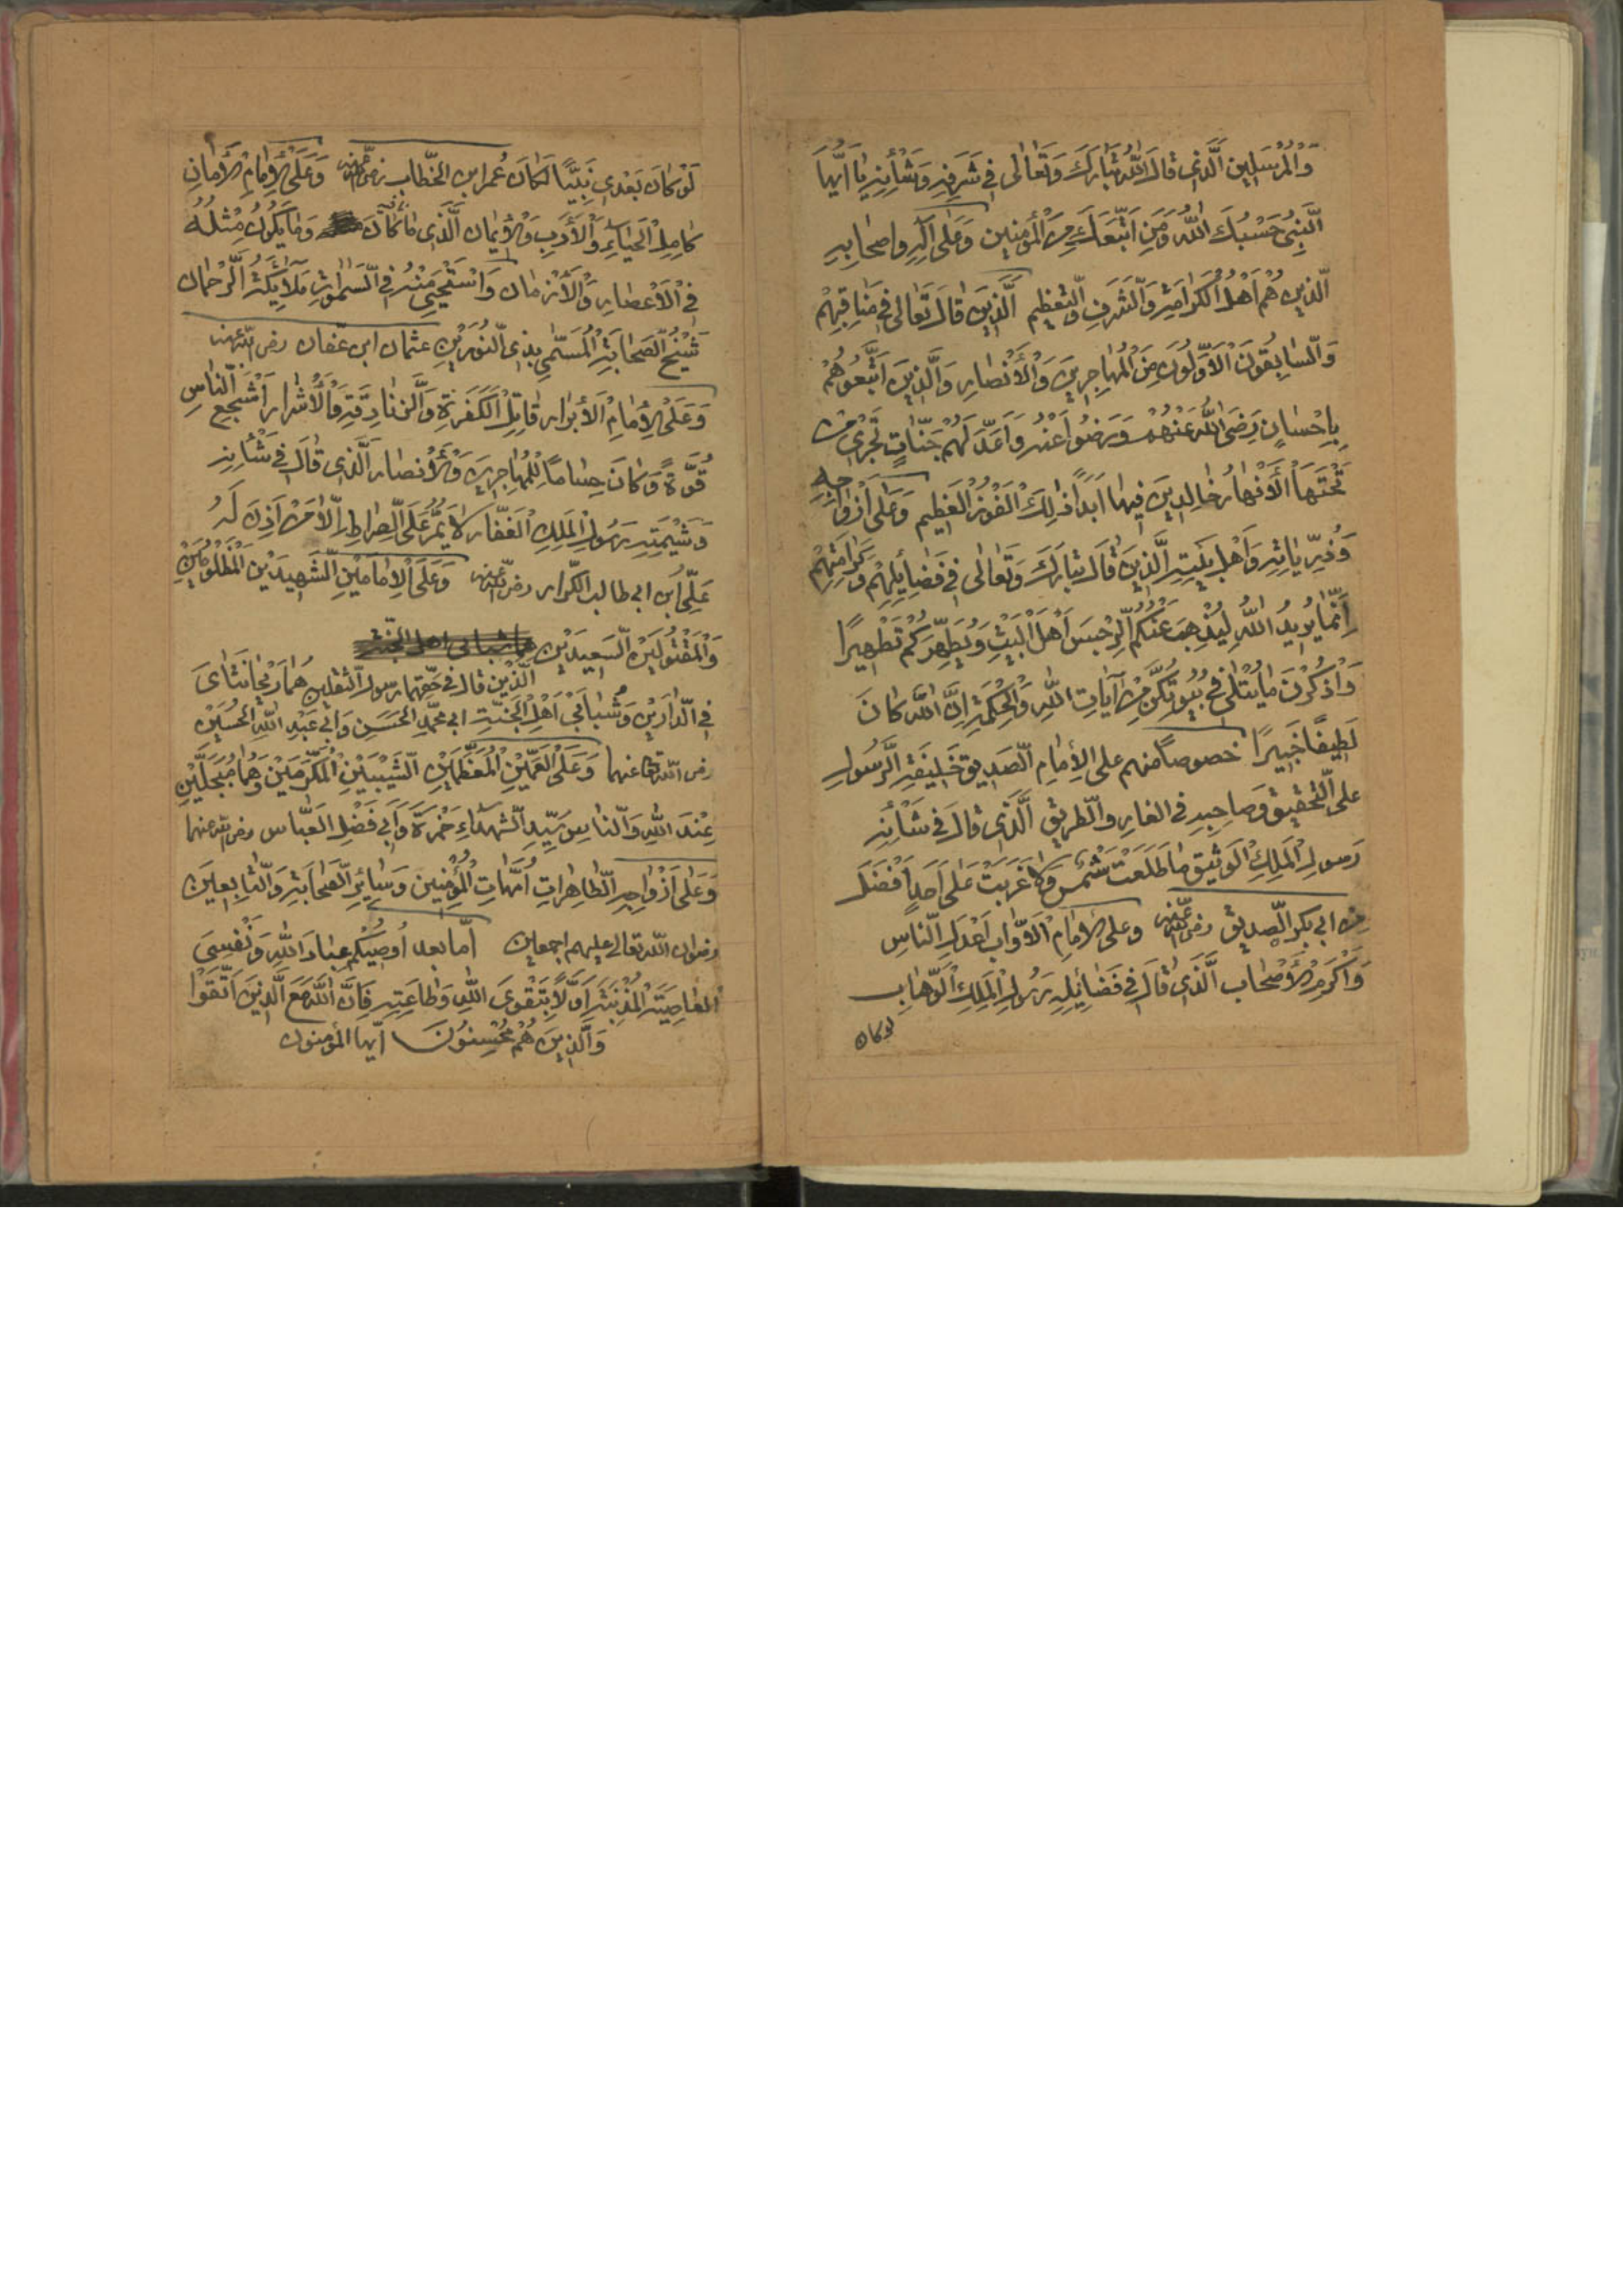 وَالْمُرْسَلِينَ الَّذِي قَالَ اللّٰهُ تَبَارَكَ وَتَعَالٰى فِي شَرَفِهِ وَشَأْنِهِ يَا أَيُّهَا
النَّبِيُّ حَسْبُكَ اللّٰهُ وَمَنِ اتَّبَعَكَ مِنَ الْمُؤْمِنِينَ وَعَلٰى آلِهِ وَاصحَابِهِ
الَّذِينَ هُمْ اَهْلُ الْكَرَامَةِ وَالشَّرَفِ وَالتَّعْظِيمِ الَّذِينَ قَالَ تَعَالٰى فِي مَنَاقِبِهِمْ
وَالسَّابِقُونَ الْاَوَّلُونَ مِنَ الْمُهَاجِرِينَ وَالْاَنْصَارِ وَالَّذِينَ اتَّبَعُوهُمْ
بِاِحْسَانٍ رَضِيَ اللّٰهُ عَنْهُمْ وَرَضُوا عَنْهُ وَاَعَدَّ لَهُمْ جَنَّاتٍ تَجْرِي مِنْ
تَحْتِهَا الْاَنْهَارُ خَالِدِينَ فِيهَا اَبَدًا ذٰلِكَ الْفَوْزُ الْعَظِيمُ وَعَلٰى اَزْوَاجِهِ
وَذُرِّيَّاتِهِ وَاَهْلِ بَيْتِهِ الَّذِينَ قَالَ تَبَارَكَ وَتَعَالٰى فِي فَضَائِلِهِمْ وَكَرَامَتِهِمْ
اِنَّمَا يُرِيدُ اللّٰهُ لِيُذْهِبَ عَنْكُمُ الرِّجْسَ اَهْلَ الْبَيْتِ وَيُطَهِّرَكُمْ تَطْهِيرًا
وَاذْكُرْنَ مَا يُتْلٰى فِي بُيُوتِكُنَّ مِنْ آيَاتِ اللّٰهِ وَالْحِكْمَةِ اِنَّ اللّٰهَ كَانَ
لَطِيفًا خَبِيرًا خصوصًا منهم على الْاِمَامِ الصّديق خَلِيفَةِ الرَّسُولِ
على التَّحْقِيقِ وَصاحِبِهِ في الغارِ والطّريقِ الَّذِي قَالَ فِي شَأْنِهِ
رَسولُ الْمَلِكِ الْوَثِيقِ مَا طَلَعَتْ شَمْسٌ وَلَا غَرَبَتْ عَلٰى اَحَدٍ اَفْضَلَ
مِنْ ابي بكر الصّديق رضي اللّٰه عنه وعلى الْاِمَامِ الْاَوَّابِ اَعْدَلِ النَّاسِ
وَاَكْرَمِ الْاَصْحَابِ الَّذِي قَالَ فِي فَضَائِلِهِ رَسُولُ الْمَلِكِ الْوَهَّابِ
لوكان
لَوْ كَانَ بَعْدِي نَبِيًّا لَكَانَ عُمَرَ ابن الخَطَّاب رضي اللّٰه عنه وَعَلَى الْاِمَامِ الْاَمَانِ
كَامِلِ الْحَيَاءِ وَالْاَدَبِ وَالْاِيمَانِ الَّذِي مَا كَانَ وَمَا يَكُونُ مِثْلُهُ
فِي الْاَعْصَارِ وَالْاَزْمَانِ وَاسْتَحْيٰى مِنْهُ فِي السَّمٰوَاتِ مَلَائِكَةُ الرَّحْمٰنِ
شَيْخِ الصَّحَابَةِ الْمُسَمّٰى بِذِي النُّورَيْنِ عثمان ابن عفان رضي اللّٰه عنه
وَعَلَى الْاِمَامِ الْاَبْرَارِ قَاتِلِ الْكَفَرَةِ وَالزَّنَادِقَةِ وَالْاَشْرَارِ اَشْجَعِ النَّاسِ
قُوَّةً وَكَانَ حِسَامًا لِلْمُهَاجِرِينَ وَالْاَنْصَارِ الَّذِي قَالَ فِي شَأْنِهِ
وَشِيمَتِهِ رَسُولُ الْمَلِكِ الْغَفَّارِ لَا يَمُرُّ عَلَى الصِّرَاطِ اِلَّا مَنْ اَذِنَ لَهُ
عَلِيُّ ابن ابي طالب الكرّار رضي اللّٰه عنه وَعَلَى الْاِمَامَيْنِ الشَّهِيدَيْنِ الْمَظْلُومَيْنِ
وَالْمَقْتُولَيْنِ السَّعِيدَيْنِ الَّذَيْنِ قال في حقّهما رسول الثقلين هُمَا رَيْحَانَتَايَ
فِي الدَّارَيْنِ وَشَبَابَيْ اَهْلِ الْجَنَّةِ ابي محمّد الْحَسَنِ وَابي عَبْدِ اللّٰهِ الْحُسَيْنِ
رضي اللّٰه عنهما وَعَلَى الْعَمَّيْنِ الْمُعَظَّمَيْنِ الشَّيْبَيْنِ الْمُكَرَّمَيْنِ وَهُمَا مُبَجَّلَيْنِ
عِنْدَ اللّٰهِ وَالنَّاسِ سَيِّدِ الشُّهَدَاءِ حَمْزَةَ وَابي فَضْلِ الْعَبَّاس رضي اللّٰه عنهما
وَعَلٰى اَزْوَاجِهِ الطَّاهِرَاتِ اُمَّهَاتِ الْمُؤْمِنِينَ وَسَائِرِ الصَّحَابَةِ وَالتَّابِعِينَ
رضوان اللّٰه تعالى عليهم اجمعين اَمَّا بعد اُوصِيكُمْ عِبَادَ اللّٰهِ وَنَفْسِي
الْعَاصِيَةَ الْمُذْنِبَةَ اَوَّلًا بِتَقْوَى اللّٰهِ وَطَاعَتِهِ فَاِنَّ اللّٰهَ مَعَ الَّذِينَ اتَّقَوْا
وَالَّذِينَ هُمْ مُحْسِنُونَ اَيُّها المؤمنون